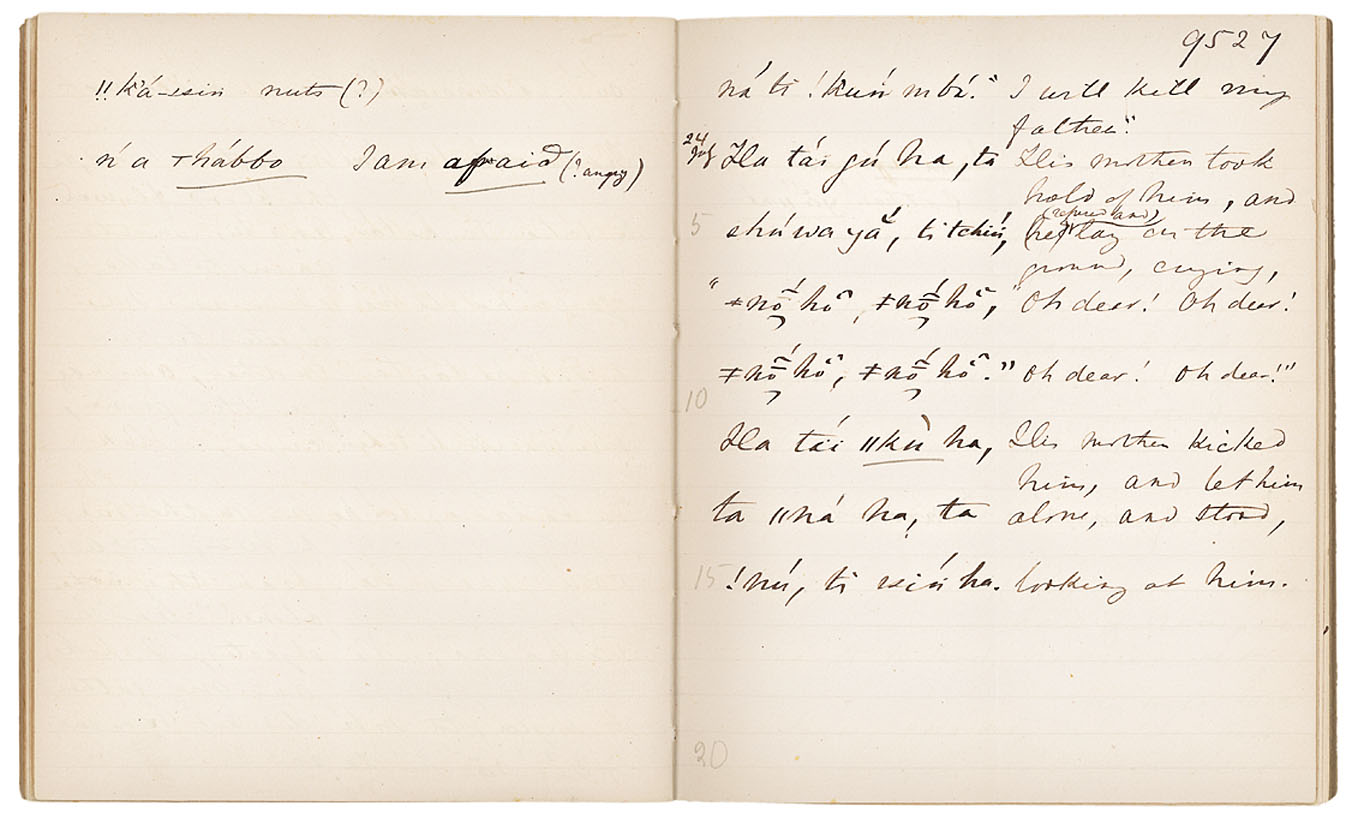 !!ká-ssin nuts (?)
n'a ⊤hábbo I am afraid (? angry)
9527
ná ti !kuń mbá." I will kill my
father."
24 July Ha tái gú ha, ta His mother took
hold of him, and
5 shúwa yă, ti tchiń, (he) (refused and) lay on the
ground, crying,
"ǂnṓ hȏ, ǂnṓ hȏ, "Oh dear! Oh dear!
ǂnṓ hȏ, ǂnṓ hȏ." Oh dear! Oh dear!"
10
Ha tái ǁkù ha, His mother kicked
him, and let him
ta ǁná ha, ta alone, and stood,
15 !nú, ti ssiń ha. looking at him.
20